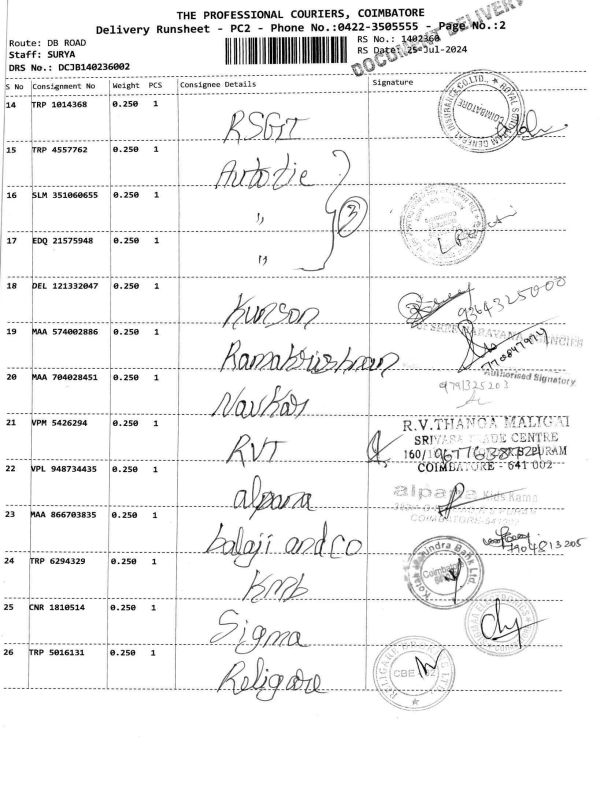 THE PROFESSIONAL COURIERS, COIMBATORE
Delivery Runsheet - PC2 - Phone No.:0422-3505555 - Page No.:2
Route: DB ROAD
RS No.: 1402360
Staff: SURYA
RS Date: 25-Jul-2024
DRS No.: DCJB140236002
DOCUMENT DELIVERY
S No Consignment No Weight PCS Consignee Details Signature
14 TRP 1014368 0.250 1 RSGI
ROYAL SUNDARAM GENERAL INSURANCE CO.LTD.,
COIMBATORE
15 TRP 4557762 0.250 1 Autotie
16 SLM 351060655 0.250 1 "
3
17 EDQ 21575948 0.250 1 "
18 DEL 121332047 0.250 1 Kunson
9364325000
19 MAA 574002886 0.250 1 Ramakrishnan
Authorised Signatory
20 MAA 704028451 0.250 1 Navkar
9791325203
21 VPM 5426294 0.250 1 RVT
R.V.THANGA MALIGAI
COIMBATORE - 641 002
22 VPL 948734435 0.250 1 alpana
alpana Kids Kamp
23 MAA 866703835 0.250 1 balaji and co
7904813205
24 TRP 6294329 0.250 1 kmb
Kotak Mahindra Bank Ltd
Coimbatore
25 CNR 1810514 0.250 1 Sigma
26 TRP 5016131 0.250 1 Religare
CBE